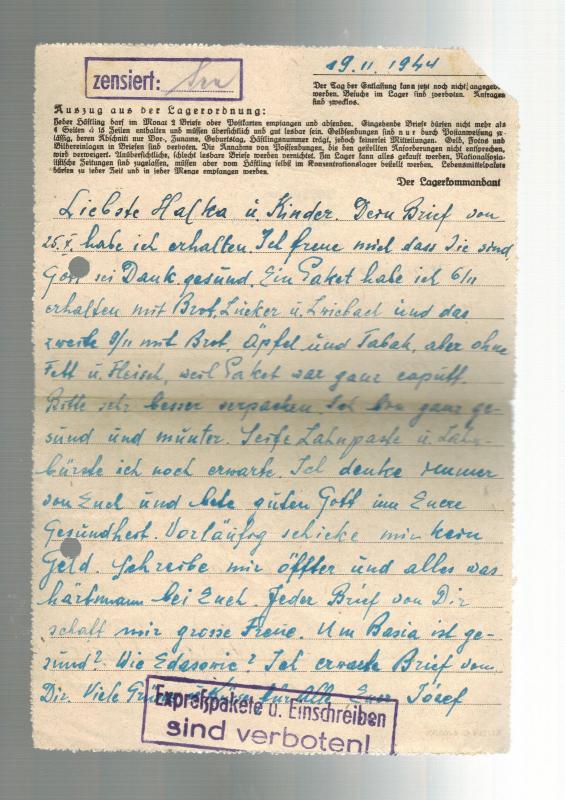 zensiert:
19.11.1944
Der Tag der Entlassung kann jetzt noch nicht angegeben
werden. Besuche im Lager sind verboten. Anfragen
sind zwecklos.
Auszug aus der Lagerordnung:
Jeder Häftling darf im Monat 2 Briefe oder Postkarten empfangen und absenden. Eingehende Briefe dürfen nicht mehr als
4 Seiten à 15 Zeilen enthalten und müssen übersichtlich und gut lesbar sein. Geldsendungen sind nur durch Postanweisung zu-
lässig, deren Abschnitt nur Vor-, Zuname, Geburtstag, Häftlingsnummer trägt, jedoch keinerlei Mitteilungen. Geld, Fotos und
Bildereinlagen in Briefen sind verboten. Die Annahme von Postsendungen, die den gestellten Anforderungen nicht entsprechen,
wird verweigert. Unübersichtliche, schlecht lesbare Briefe werden vernichtet. Im Lager kann alles gekauft werden. Nationalsozia-
listische Zeitungen sind zugelassen, müssen aber vom Häftling selbst im Konzentrationslager bestellt werden. Lebensmittelpakete
dürfen zu jeder Zeit und in jeder Menge empfangen werden.
Der Lagerkommandant
Liebste Halka u. Kinder. Dein Brief von
25.X. habe ich erhalten. Ich freue mich dass Sie sind
Gott sei Dank gesund. Ein Paket habe ich 6/11
erhalten mit Brot, und das
zweite 9/11 mit Brot, Äpfel und Tabak, aber ohne
Fett u. Fleisch, weil Paket war ganz caputt.
Bitte sehr besser verpacken. Ich bin ganz ge-
sund und munter. Seife Zahnpaste u. Zahn-
bürste ich noch erwarte. Ich denke immer
von Euch und bete guten Gott um Euere
Gesundheit. Vorläufig schicke mir kein
Geld. Schreibe mir öffter und alles was
bei Euch. Jeder Brief von Dir
schaft mir grosse Freue. Um Basia ist ge-
sund? Wie Ich erwarte Brief vom
Dir. Viele für Alle Euer Józef
Expreßpakete u. Einschreiben
sind verboten!